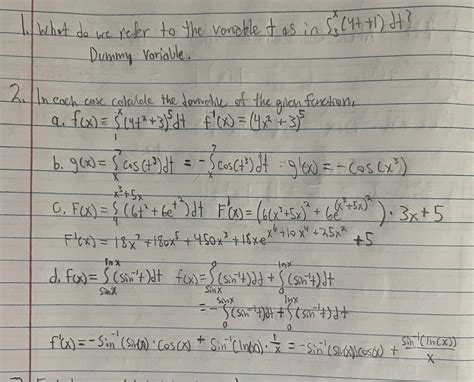 1. What do we refer to the variable t as in ∫₃ˣ (4t+1) dt?
Dummy Variable.
2. In each case calculate the derivative of the given function.
a. f(x) = ∫₁ˣ (4t²+3)⁵ dt   f'(x) = (4x²+3)⁵
b. g(x) = ∫ₓ⁷ cos(t³)dt = -∫₇ˣ cos(t³)dt   g'(x) = -cos(x³)
c. F(x) = ∫₄^(x³+5x) (6t²+6e^(t²))dt   F'(x) = (6(x³+5x)² + 6e^((x³+5x)²)) · 3x+5
F'(x) = 18x⁷+180x⁵+450x³+18xe^(x⁶+10x⁴+25x²) +5
d. f(x) = ∫_(sinx)^(lnx) (sin⁻¹t)dt   f(x) = ∫_(sinx)^0 (sin⁻¹t)dt + ∫₀^(lnx) (sin⁻¹t)dt
= -∫₀^(sinx) (sin⁻¹t)dt + ∫₀^(lnx) (sin⁻¹t)dt
f'(x) = -sin⁻¹(sin(x)) · cos(x) + sin⁻¹(ln(x)) · 1/x = -sin⁻¹(sin(x))cos(x) + sin⁻¹(ln(x))/x